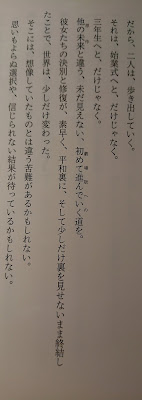 だから、二人は、歩き出していく。
それは、始業式へと、だけじゃなく。
三年生へと、だけじゃなく。
他の未来と違う、未だ見えない、初めて進んでいく道を。
彼女たちの決別と修復が、素早く、平和裏に、そして少しだけ裏を見せないまま終結し
たことで、世界は、少しだけ変わった。
そこには、想像していたものとは違う苦難があるかもしれない。
思もよらぬ選択や、信じられない結果が待っているかもしれない。